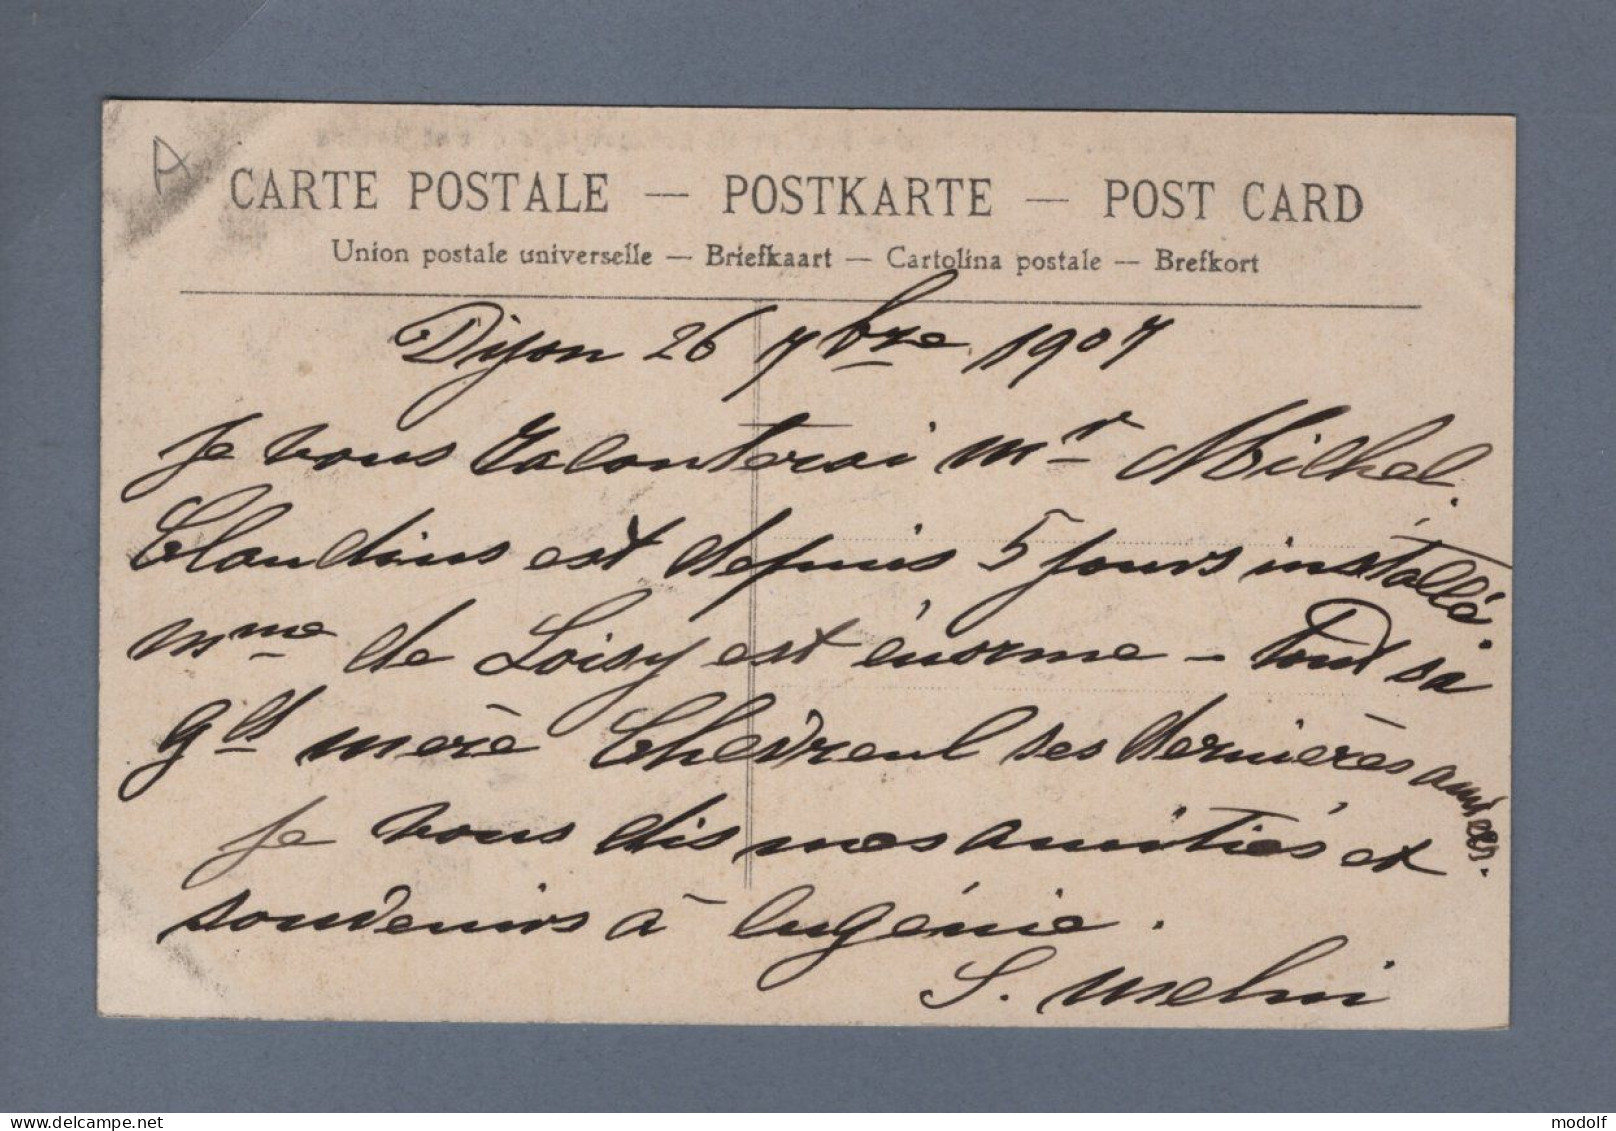 A
CARTE POSTALE — POSTKARTE — POST CARD
Union postale universelle — Briefkaart — Cartolina postale — Brefkort
Dijon 26 7bre 1907
Je vous raconterai Mr Michel.
Claudius est depuis 5 jours installé.
Mme de Loisy est énorme - Tout sa
gde mère Chevreul ses dernières années.
Je vous dis mes amitiés et
souvenirs à Eugénie.
S. Melin
modolf